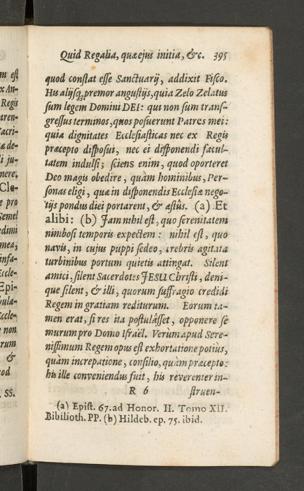 Quid Regalia, quæ ejus initia, &c. 395
quod constat esse Sanctuarij, addixit Fisco.
Hu alijsq; premor angustijs, quia Zelo Zelatus
sum legem Domini DEI: qui non sum trans-
gressus terminos, quos posuerunt Patres mei:
quia dignitates Ecclesiasticas nec ex Regis
præcepto disposui, nec ei disponendi facul-
tatem indulsi; sciens enim, quod oporteret
Deo magis obedire, quàm hominibus, Per-
sonas eligi, quæ in disponendis Ecclesiæ nego-
tijs pondus diei portarent, & æstûs. (a) Et
alibi: (b) Jam nihil est, quo serenitatem
nimbosi temporis expectem: nihil est, quo
navis, in cujus puppi sedeo, crebris agitata
turbinibus portum quietis attingat. Silent
amici, silent Sacerdotes JESU Christi, deni-
que silent, & illi, quorum suffragio credidi
Regem in gratiam rediturum. Eorum ta-
men erat, si res ita postulâsset, opponere se
murum pro Domo Israël. Verùm apud Sere-
nissimum Regem opus est exhortatione potius,
quàm increpatione, consilio, quàm præcepto:
his ille conveniendus fuit, his reverenter in-
R 6 struen-
(a) Epist. 67. ad Honor. II. Tomo XII.
Bibilioth. PP. (b) Hildeb. ep. 75. ibid.